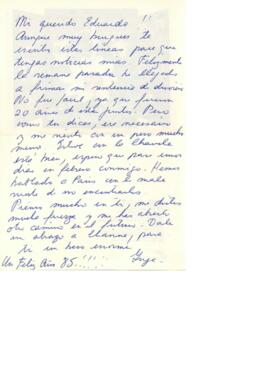 Mi querido Eduardo !!
Aunque muy burgues te
escribo estas lineas para que
tengas noticias mias. Felizmente
la semana pasada he llegado
a firmar mi sentencia de divorcio
No fue facil, ya que fueron
20 años de vida juntos. Pero
como tu dices, era necesario
y me siento con un peso mucho
menos. Estuve con la Chavela
este mes, espero que pase unos
dias en febrero conmigo. Hemos
hablado a Paris con la mala
suerte de no encontrarlos
Pienso mucho en ti, me distes
mucha fuerza y me has abierto
otro camino en el futuro. Dale
un abrazo a Elianne, para
ti un beso enorme
Un Feliz Año 85 !!!!